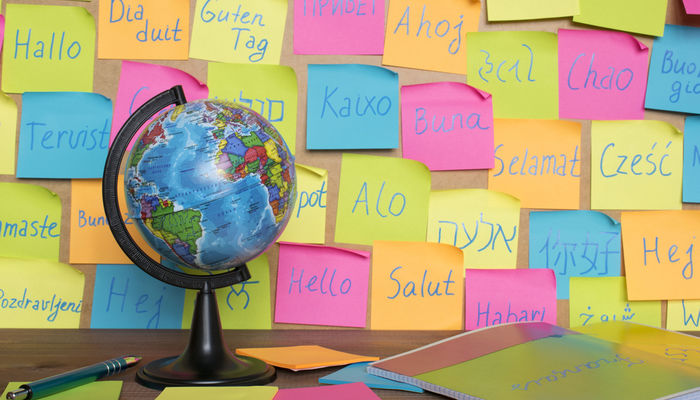 Hallo
Dia
duit
Guten
Tag
ПРИВЕТ
Ahoj
Chao
Buo
gio
Tervist
Kaixo
Buna
Selamat
Cześć
amaste
Bun
pot
Alo
你好
Hej
Pozdravljeni
Hej
Hello
Salut
Habari
W